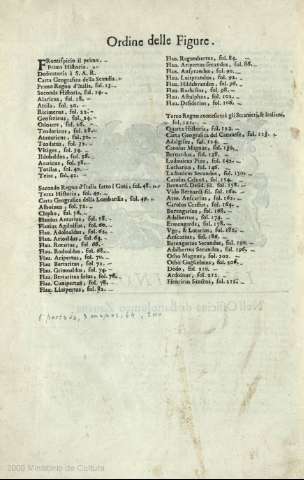 Ordine delle Figure.
FRontispicio il primo.
Primo Historia.
Dedicatoria à S. A. R.
Carta Geografica della Scandia.
Primo Regno d'Italia, fol. 13.
Seconda Historia, fol. 14.
Alaricus, fol. 18.
Attila, fol. 20.
Ricimerus, fol. 22.
Gensericus, fol. 24.
Odoacer, fol. 26.
Theodoricus, fol. 28.
Atalaricus, fol. 30.
Teodatus, fol. 32.
Vitiges, fol. 34.
Ildobaldus, fol. 36.
Araricus, fol. 38.
Totilas, fol. 40.
Teias, fol. 42.
Secondo Regno d'Italia sotto i Goti, fol. 48.
Terza Historia, fol. 49.
Carta Geografica della Lombardia, fol. 49.
Alboinus, fol. 52.
Clephus, fol. 56.
Flauius Antarius, fol. 58.
Flauius Agilulfus, fol. 60.
Flau. Adaloaldus, fol. 62.
Flau. Arioaldus, fol. 64.
Flau. Rotarius, fol. 66.
Flau. Rodoaldus, fol. 68.
Flau. Aripertus, fol. 70.
Flau. Bertarius, fol. 72.
Flau. Grimoaldus, fol. 74.
Flau. Bertarius solus, fol. 76.
Flau. Cunipertus, fol. 78.
Flau. Liutpertus, fol. 82.
Flau. Ragumbertus, fol. 84.
Flau. Aripertus secundus, fol. 86.
Flau. Ansprandus, fol. 90.
Flau. Luitprandus, fol. 92.
Flau. Hildebrandus, fol. 96.
Flau. Rachisius, fol. 98.
Flau. Aistulphus, fol. 102.
Flau. Desiderius, fol. 106.
fol. 121.
Quarta Historia, fol. 122.
Adalgisus, fol. 124.
Carolus Magnus, fol. 130.
Bernardus, fol. 138.
Ludouicus Pius, fol. 142.
Lotharius, fol. 146.
Ludouicus Secundus, fol. 150.
Carolus Caluus, fol. 154.
Carolus Crassus, fol. 164.
Berengarius, fol. 168.
Adalbertus, fol. 174.
Ermengarda, fol. 178.
Vgo, & Lotarius, fol. 182.
Anscarius, fol. 186.
Berengarius Secundus, fol. 190.
Adalbertus Secundus, fol. 196.
Otho Magnus, fol. 200.
Otho Guglielmus, fol. 206.
Dodo, fol. 210.
Ardoinus, fol. 212.
Henricus Sanctus, fol. 216.
2009 Ministerio de Cultura